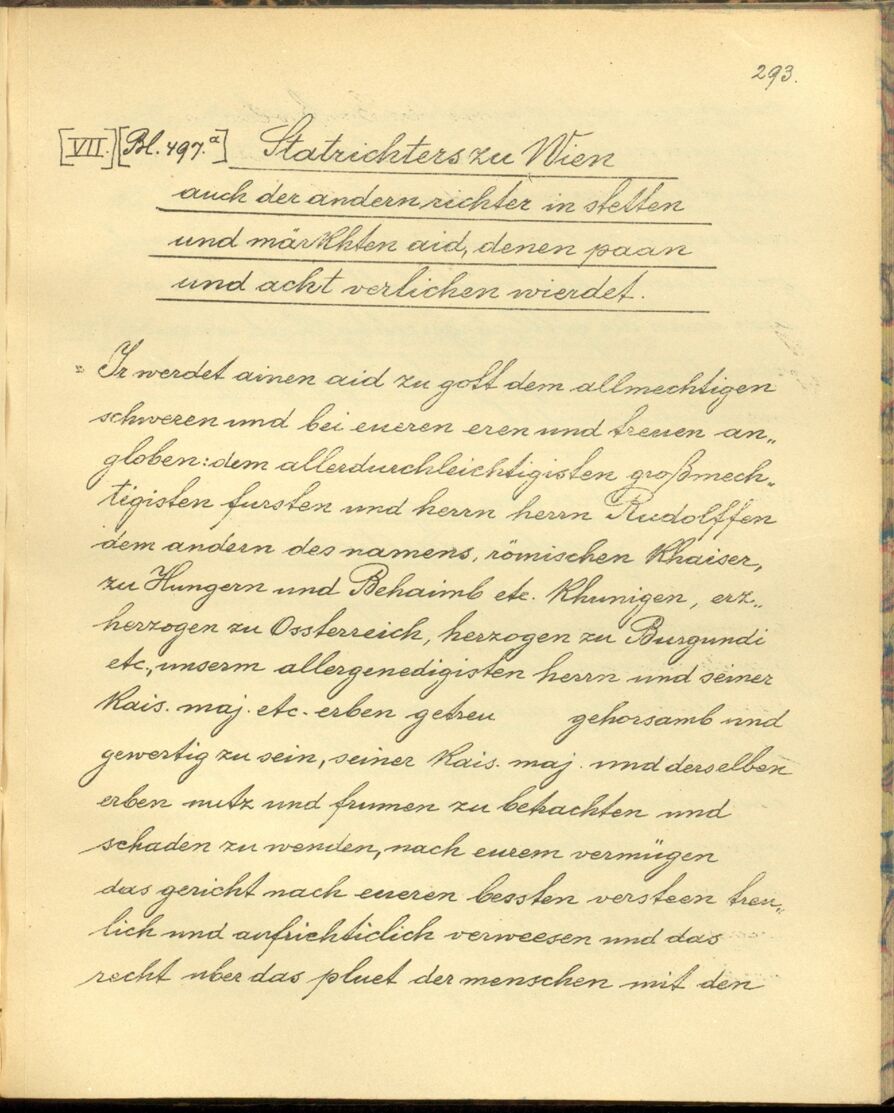 293.
[VII.] [Bl. 497.a] Statrichters zu Wien
auch der andern richter in stetten
und märkhten aid, denen paan
und acht verlichen wierdet.
"Ir werdet ainen aid zu gott dem allmechtigen
schweren und bei eueren eren und treuen an„
globen: dem allerdurchleichtigisten großmech„
tigisten fursten und herrn herrn Rudolffen
dem andern des namens, römischen Khaiser,
zu Hungern und Behaimb etc. Khunigen, erz„
herzogen zu Ossterreich, herzogen zu Burgundi
etc., unserm allergenedigisten herrn und seiner
Kais. maj. etc. erben getreu gehorsamb und
gewertig zu sein, seiner Kais. maj. und derselben
erben nutz und frumen zu betrachten und
schaden zu wenden, nach eurem vermügen
das gericht nach eueren bessten versteen treu„
lich und aufrichticlich verweesen und das
recht uber das pluet der menschen mit den